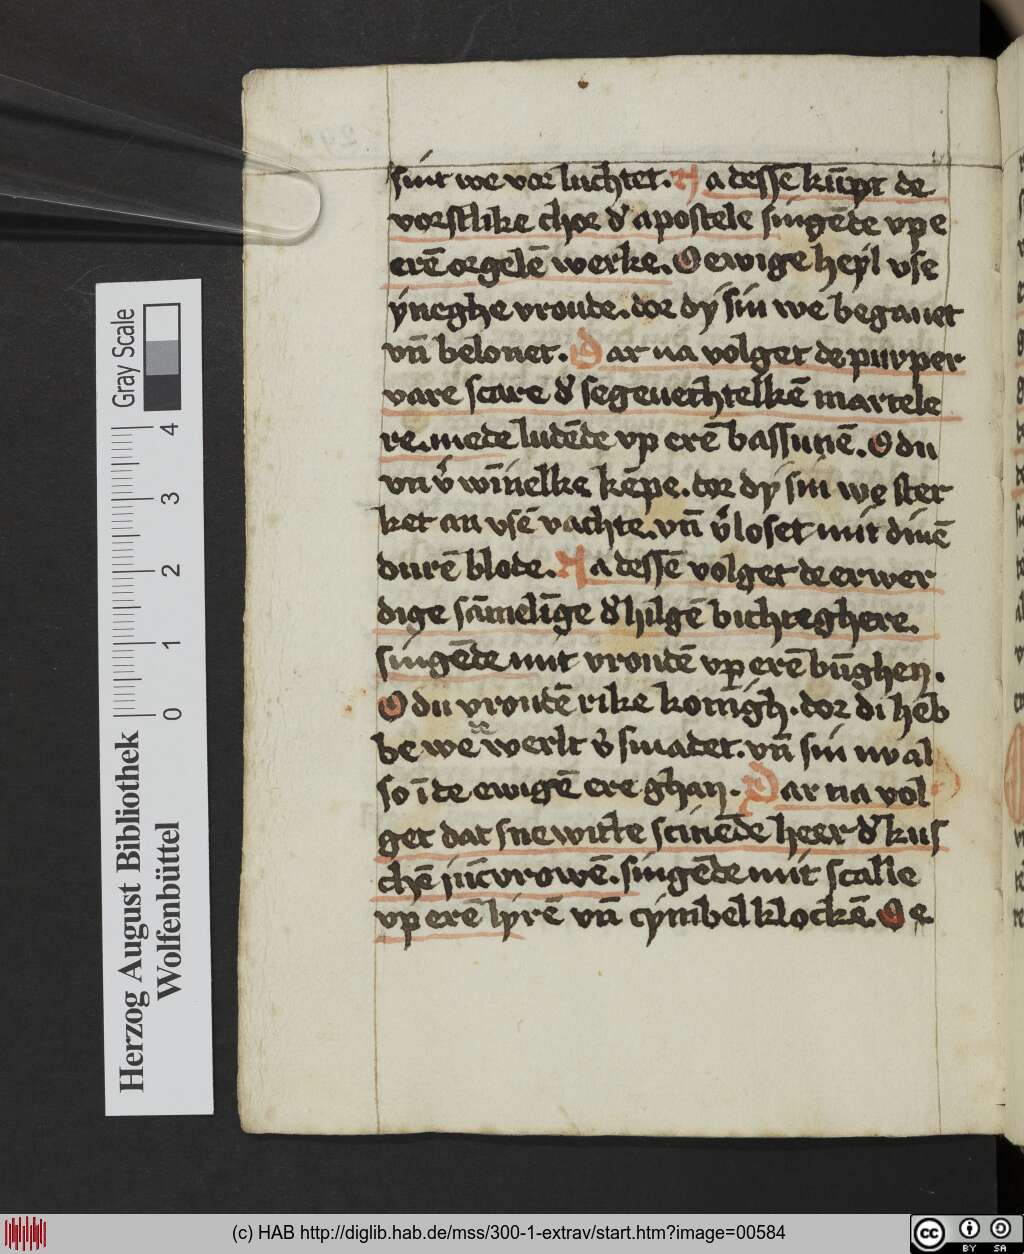 sint we vor luchtet. Na dessē kūpt de
vorstlike chor d' apostele singēde vp e
erē orgelē werke. O ewige heyl vse
ýneghe vroude. dor dy sin we begauet
vn̄ belonet. Dar na volget de purper
vare scare d' segeuechtelkē martele
re. mede ludēde vp erē bassunē. O du
vn v' wīnelke kēpe. dor dy sin we ster
ket an vsē vachte. vn̄ v'loset mit dinē
durē blode. Na dessē volget de erwer
dige sāmelīge d' hilgē bichteghere.
singēde mit vroudē vp erē būghen.
O du vroudē rike konigh. dor di heb
be we werlt v' smadet. vn̄ sin nv al
so ī de ewigē ere ghan. Dar na vol
get dat snewitte scinēde heer d' kus
chē jūcvrowē. singēde mit scalle
vp erē lyrē vn̄ cymbel klockē. O e
Herzog August Bibliothek
Wolfenbüttel
0 1 2 3 4
Gray Scale
(c) HAB http://diglib.hab.de/mss/300-1-extrav/start.htm?image=00584
cc BY SA